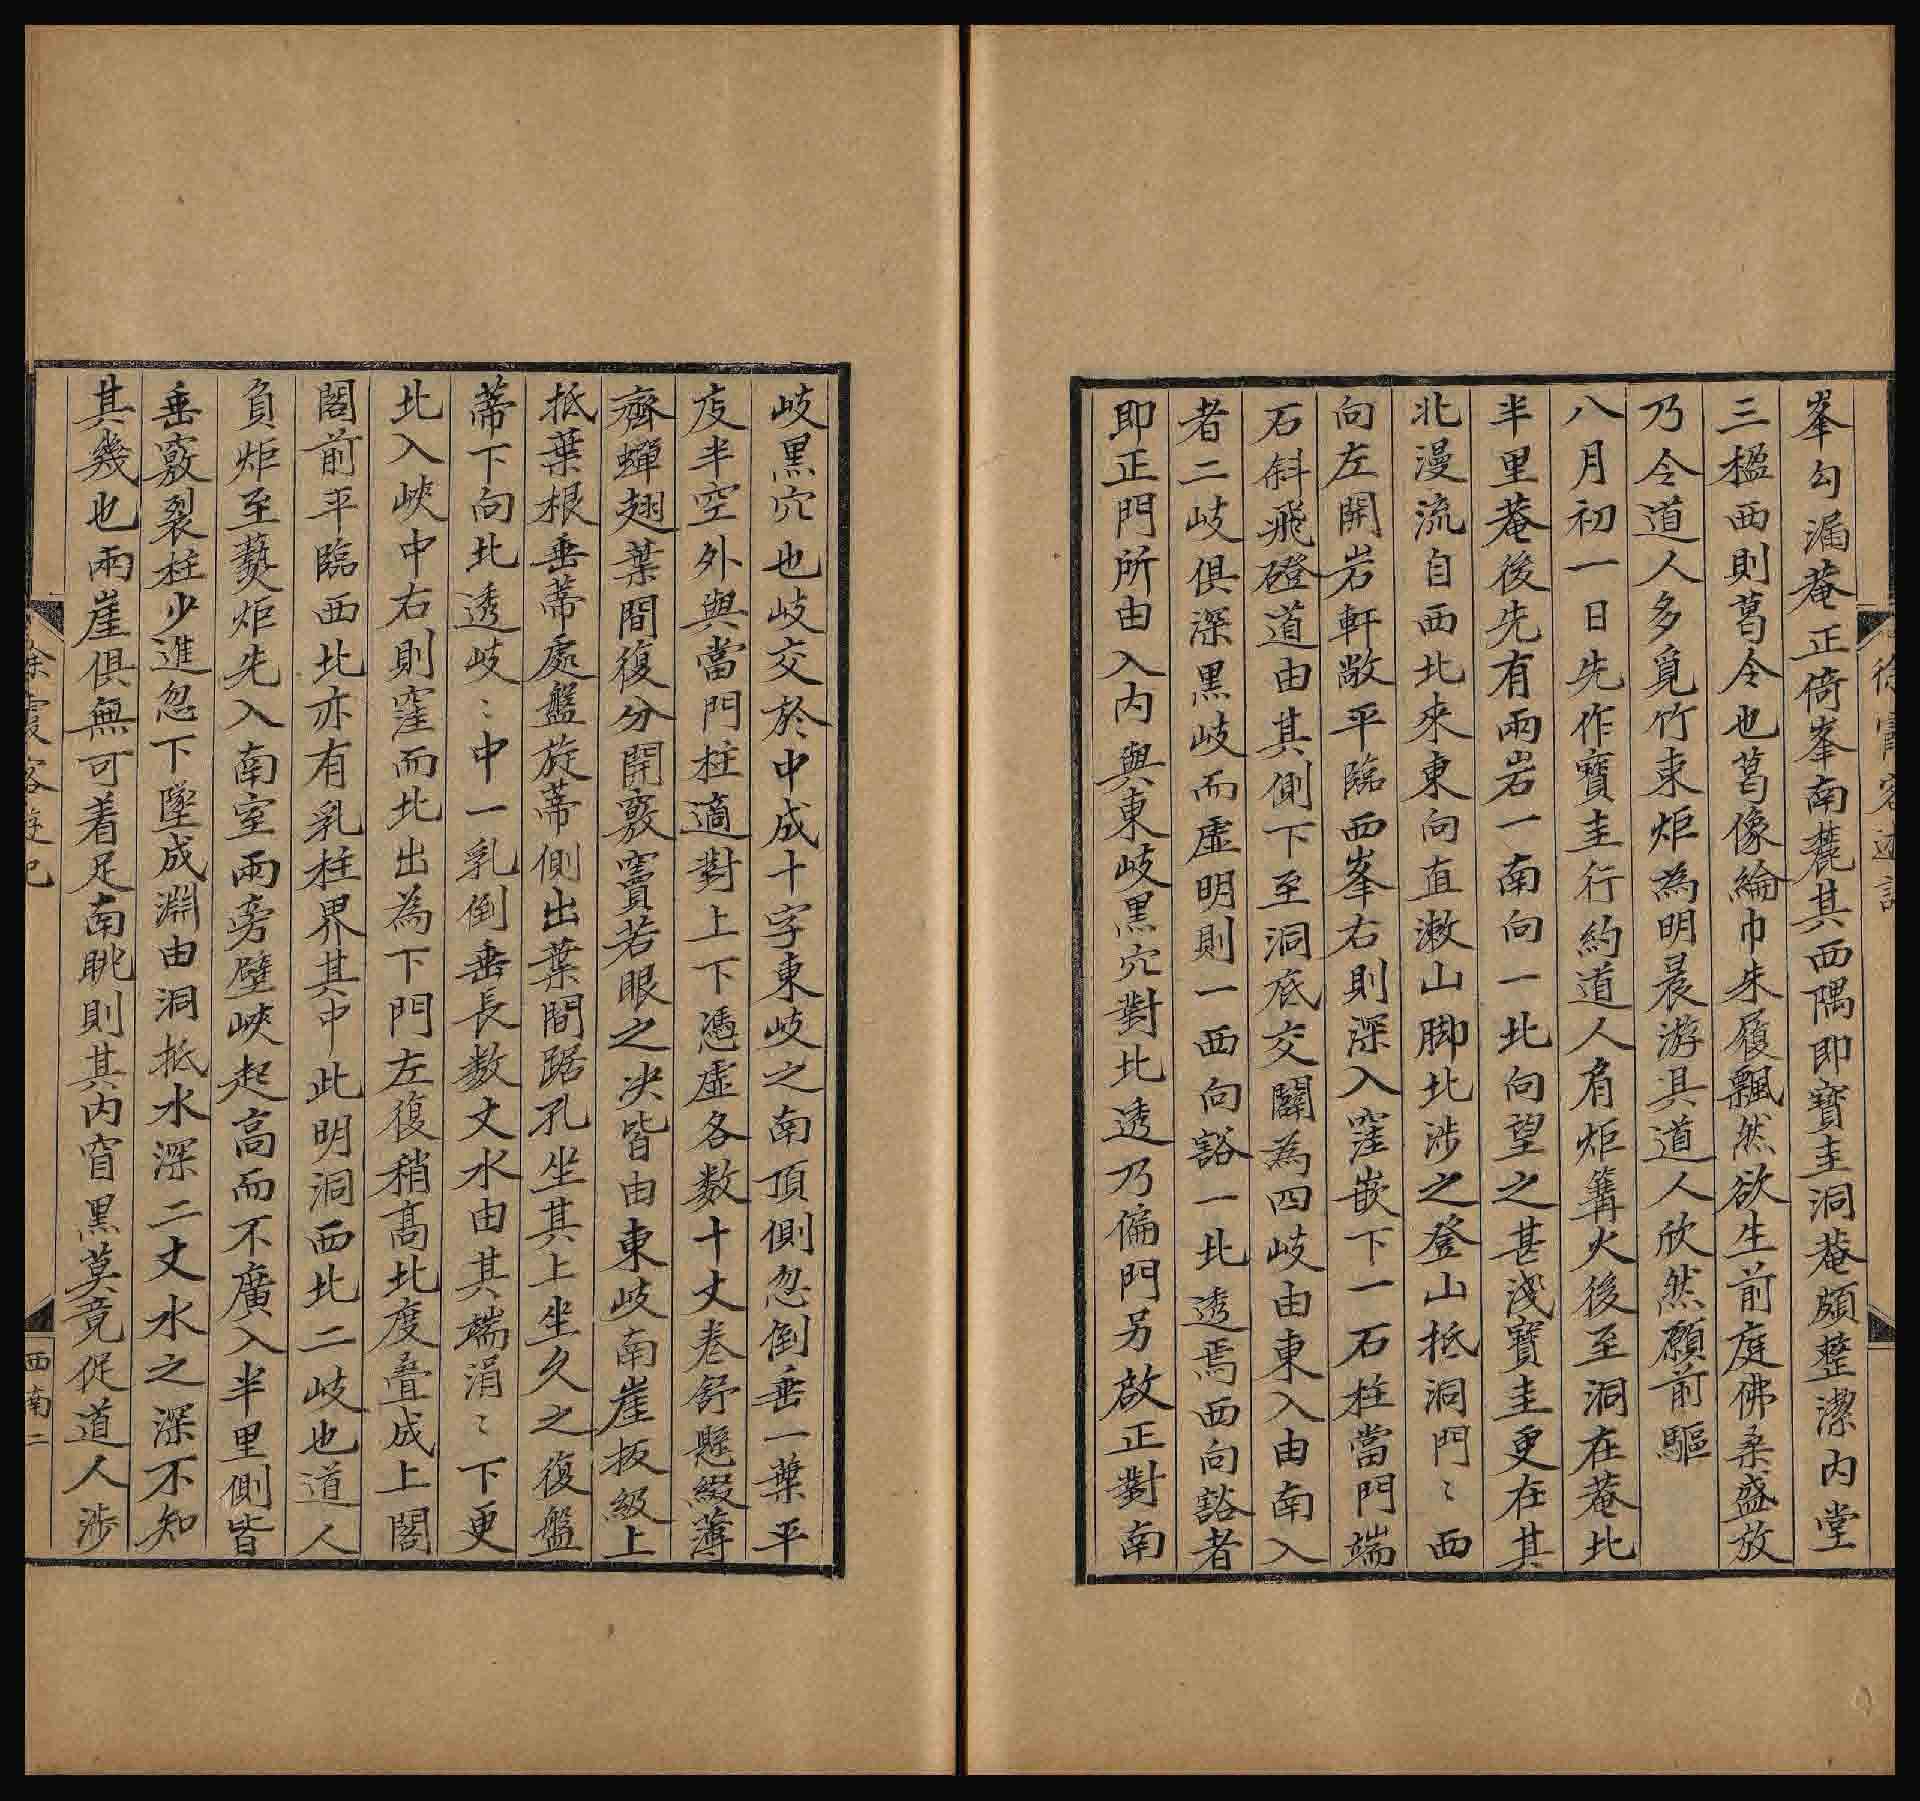 峯勾漏菴正倚峯南麓其西隅即寶圭洞菴頗整潔内堂
三楹西則葛令也葛像綸巾朱履飄然欲生前庭佛桑盛放
乃令道人多覓竹束炬為明晨游具道人欣然願前驅
八月初一日先作寶圭行約道人肩炬篝火後至洞在菴北
半里菴後先有兩岩一南向一北向望之甚淺寶圭更在其
北漫流自西北來東向直漱山脚北涉之登山抵洞門〻西
向左開岩軒敞平臨西峯右則深入窪嵌下一石柱當門端
石斜飛磴道由其側下至洞底交闢為四岐由東入由南入
者二岐俱深黑岐而虛明則一西向豁一北透焉西向豁者
即正門所由入内與東岐黒穴對比透乃偏門另啟正對南
徐霞客遊記
岐黒穴也岐交於中成十字東岐之南頂側忽倒垂一葉平
庋半空外與當門柱適對上下憑虛各数十丈卷舒懸綴薄
齊蟬翅葉間復分開竅竇若眼之决眥由東岐南崖扳級上
抵葉根垂蒂處盤旋蒂側出葉間踞孔坐其上坐久之復盤
蒂下向北透岐〻中一乳倒垂長数丈水由其端涓〻下更
北入峽中右則窪而北出為下門左復稍高北度疊成上閣
閣前平臨西北亦有乳柱界其中此明洞西北二岐也道人
負炬至爇炬先入南室兩旁壁峽起高而不廣入半里側皆
垂竅裂柱少進忽下墜成淵由洞抵水深二丈水之深不知
其幾也兩崖俱無可着足南眺則其内窅黒莫竟促道人涉
徐霞客遊記
西南二